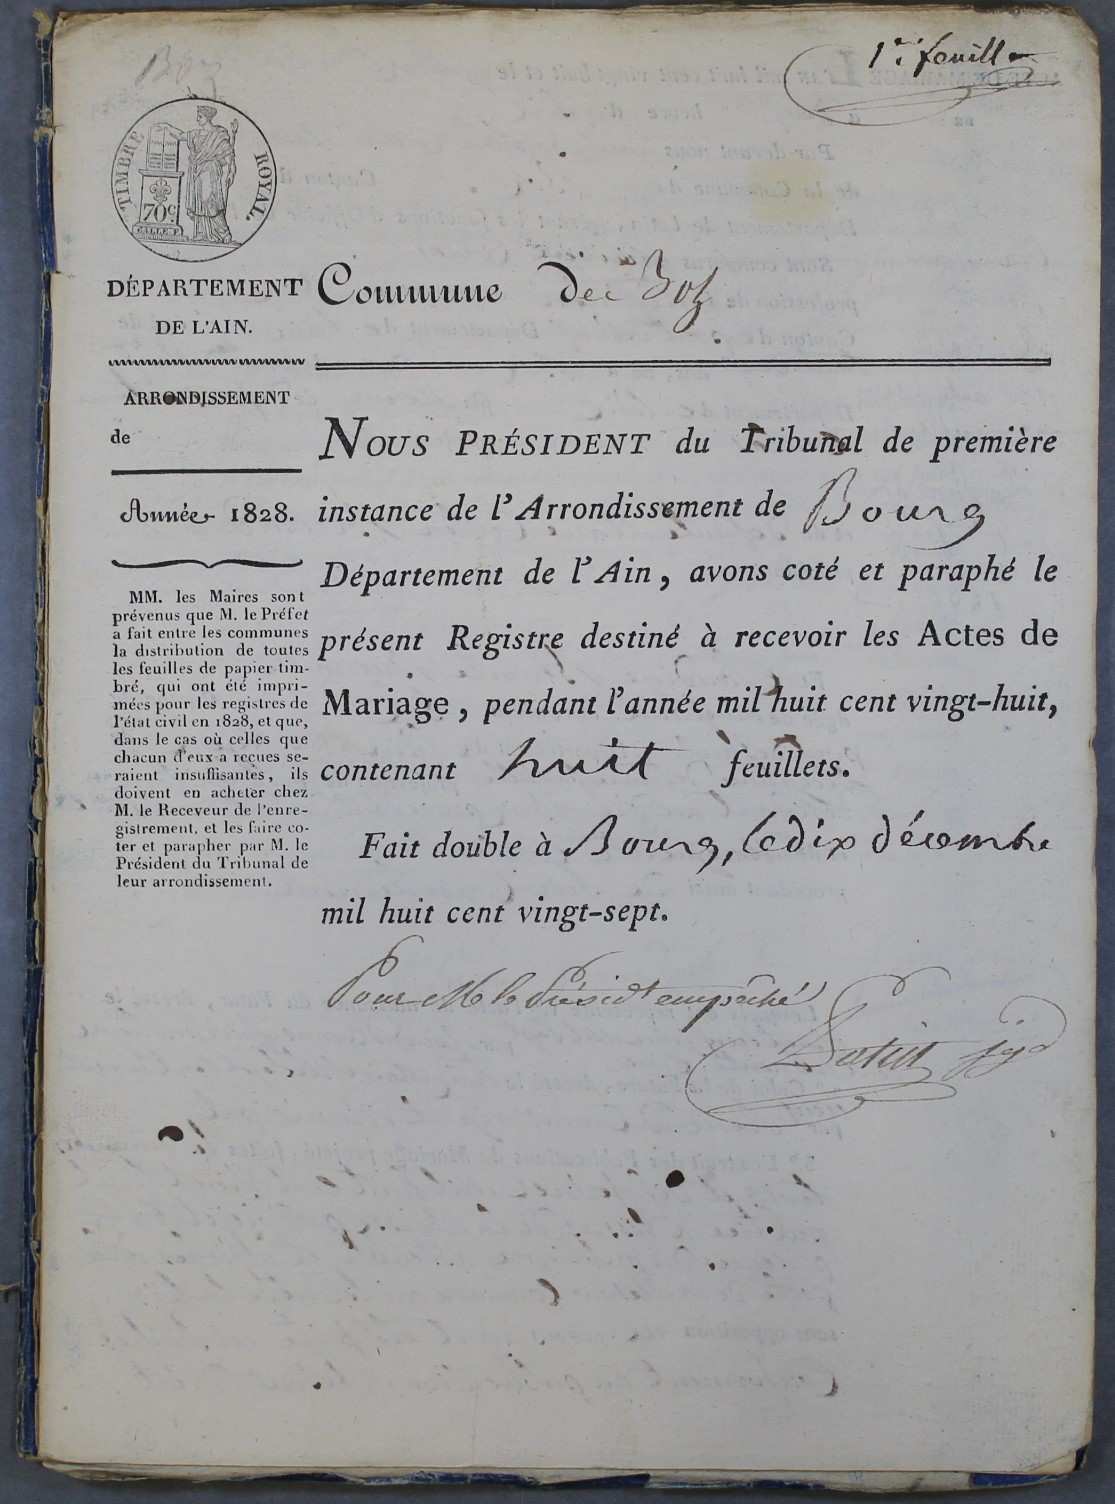 1re feuille
Boz
TIMBRE ROYAL.
70c
DÉPARTEMENT
DE L'AIN.
Commune de Boz
ARRONDISSEMENT
de
Année 1828.
MM. les Maires sont
prévenus que M. le Préfet
a fait entre les communes
la distribution de toutes
les feuilles de papier tim-
bré, qui ont été impri-
mées pour les registres de
l'état civil en 1828, et que,
dans le cas où celles que
chacun d'eux a reçues se-
raient insuffisantes, ils
doivent en acheter chez
M. le Receveur de l'enre-
gistrement, et les faire co-
ter et parapher par M. le
Président du Tribunal de
leur arrondissement.
NOUS PRÉSIDENT du Tribunal de première
instance de l'Arrondissement de Bourg
Département de l'Ain, avons coté et paraphé le
présent Registre destiné à recevoir les Actes de
Mariage, pendant l'année mil huit cent vingt-huit,
contenant huit feuillets.
Fait double à Bourg, le dix décembre
mil huit cent vingt-sept.
Pour M le Présidt empêché